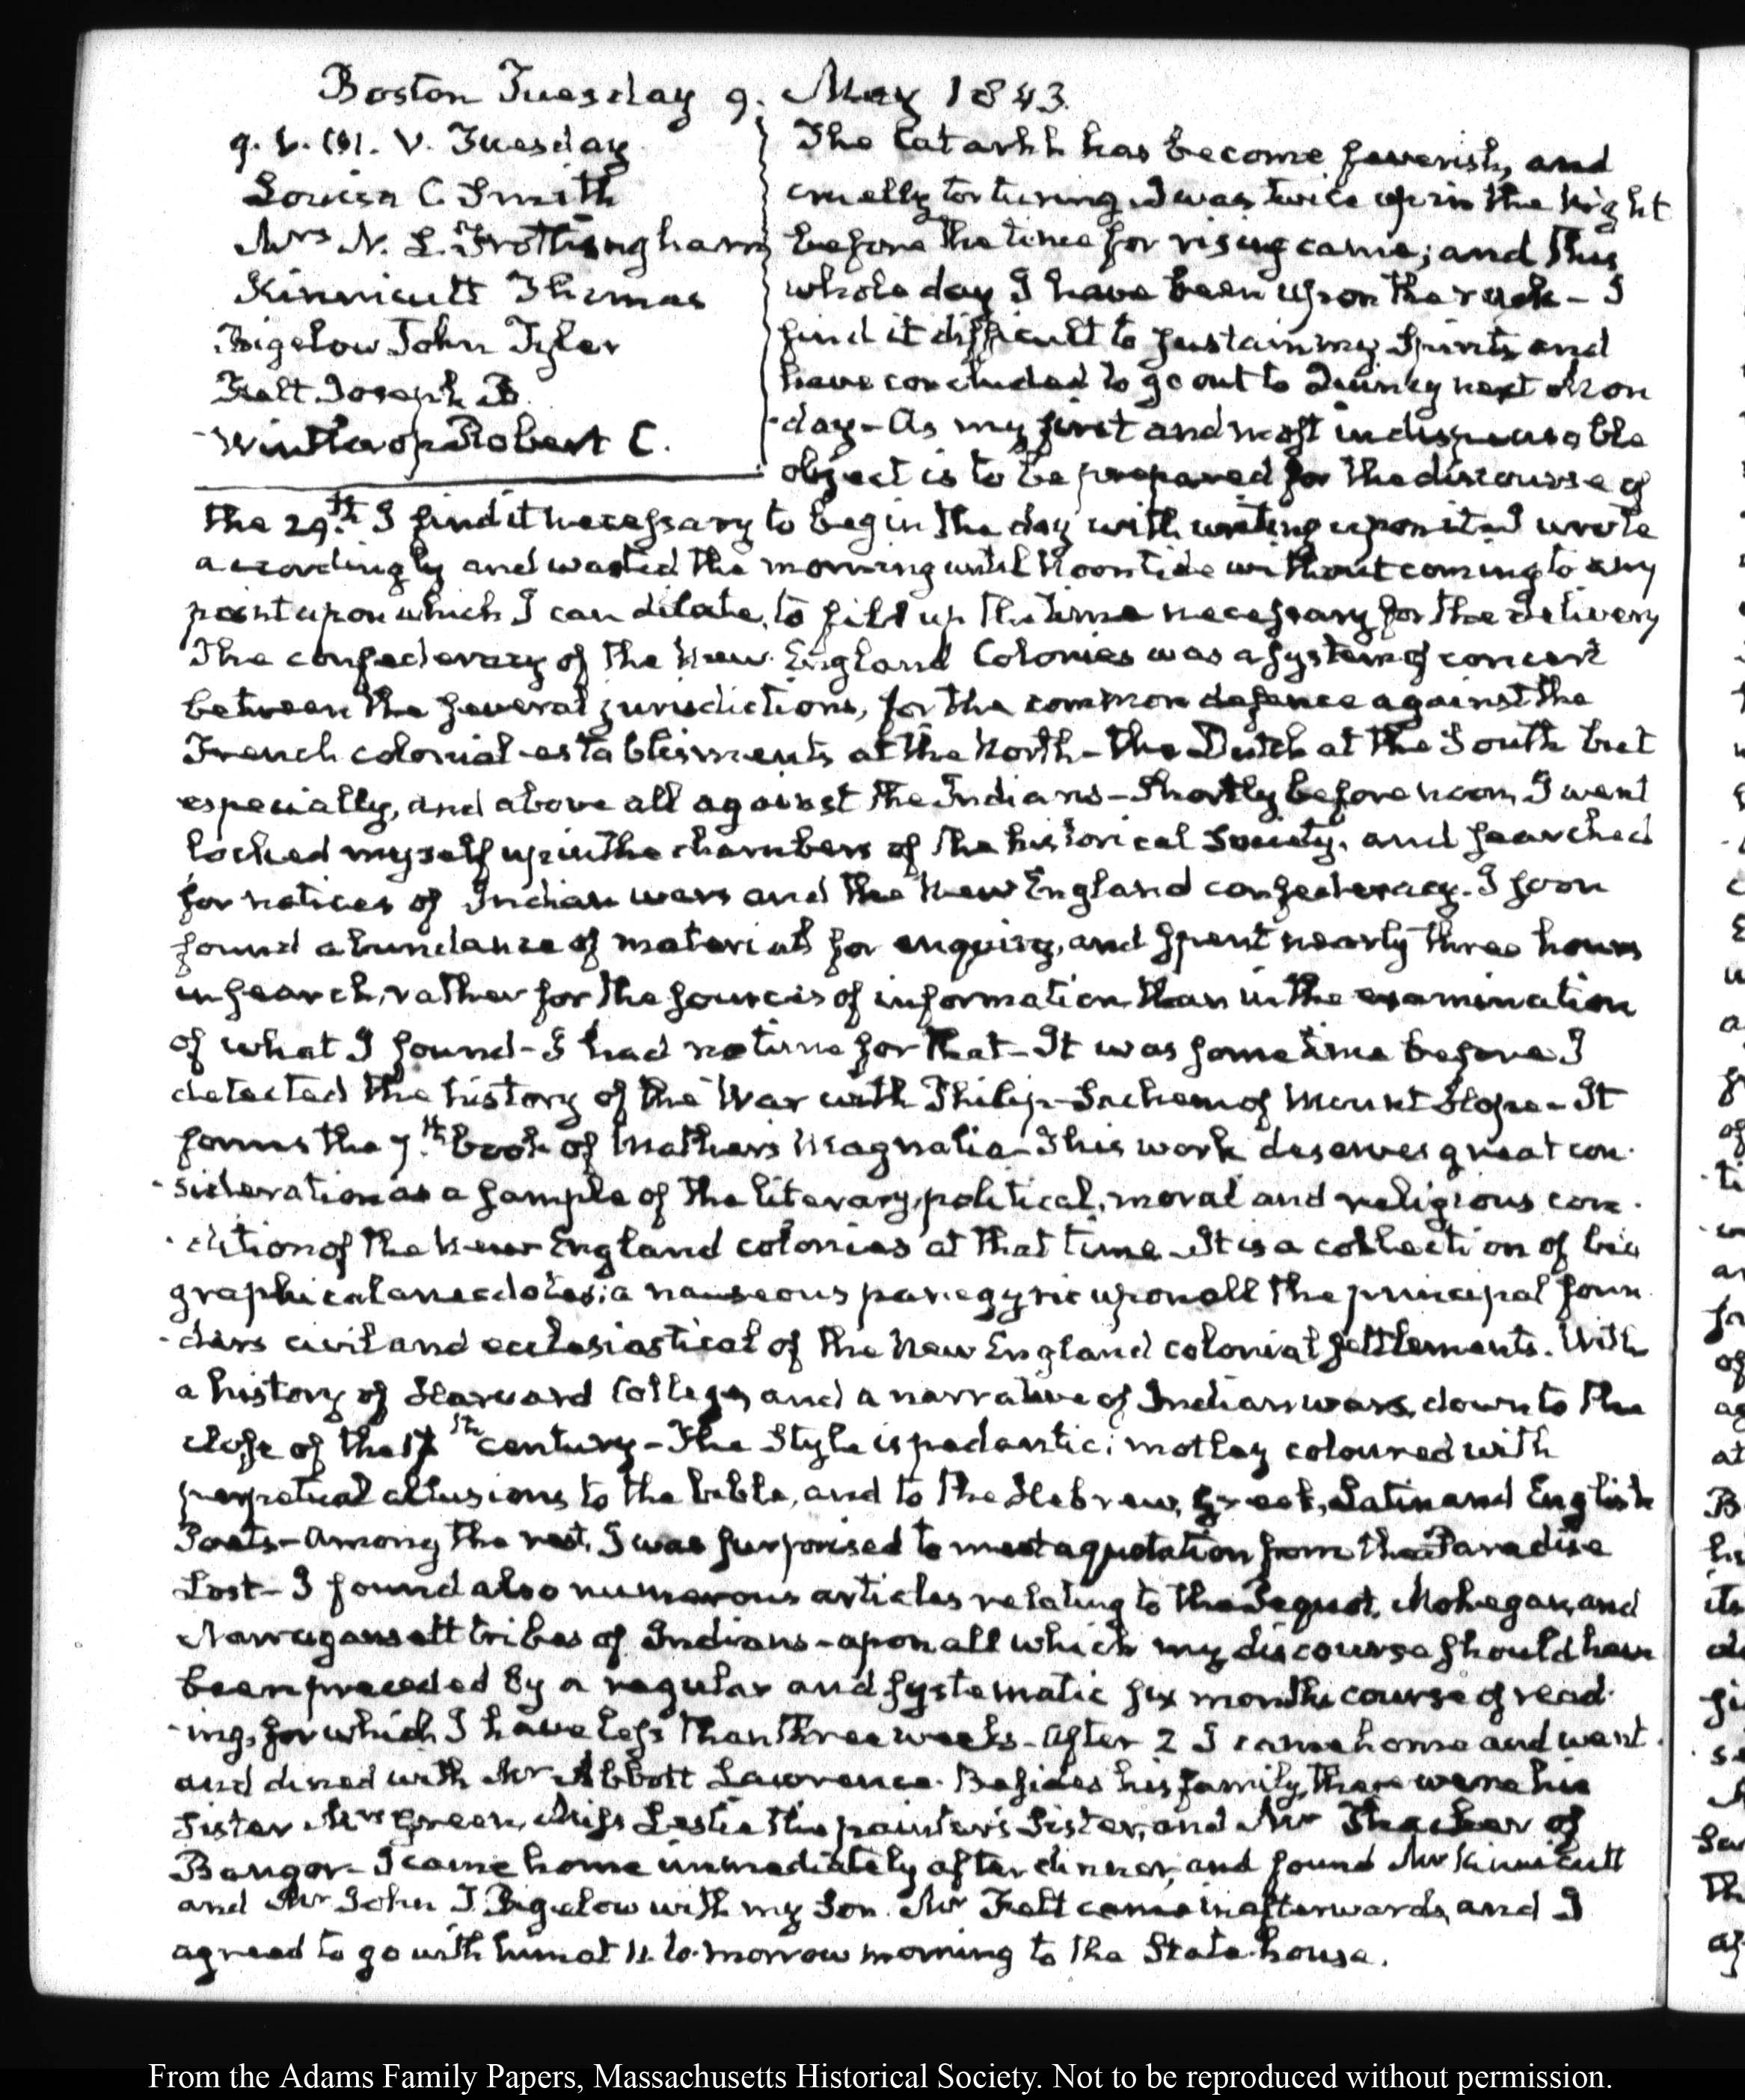 Boston Tuesday 9. May 1843.
9. V. Tuesday
Louisa C. Smith
Mrs N. L. Frothingham
Kinnicutt Thomas
Bigelow John Tyler
Felt Joseph B.
Winthrop Robert C.
The Catarrh has become feverish, and
cruelly torturing. I was twice up in the Night
before the time for rising came; and this
whole day I have been upon the rack – I
find it difficult to sustain my Spirits, and
have concluded to go out to Quincy next Mon
-day – As my first and most indispensable
object is to be prepared for the discourse of
the 29.th I find it necessary to begin the day with writing upon it – I wrote
accordingly and wasted the morning until Noon tide without coming to any
point upon which I can dilate, to fill up the time necessary for the delivery
The confederacy of the New England Colonies was a system of concert
between the several jurisdictions, for the common defence against the
French colonial establisments at the North – the Dutch at the South but
especially, and above all against the Indians – Shortly before noon I went
locked myself up in the chambers of the historical Society, and searched
for notices of Indian wars and the New England confederacy. I soon
found abundance of materials for enquiry, and spent nearly three hours
in search, rather for the sources of information than in the examination
of what I found – I had no time for that – It was some time before I
detected the history of the War with Philip – Sachem of Mount Hope – It
forms the 7.th book of Mathers Magnalia – This work deserves great con-
-sideration as a sample of the literary, political, moral and religious con-
-dition of the New England colonies at that time. It is a collection of bio
graphical anecdotes; a nauseous panegyric upon all the principal foun
-ders civil and ecclesiastical of the New England colonial settlements. With
a history of Harvard College, and a narrative of Indian wars, down to the
close of the 17th century – The Style is pedantic; motley coloured with
perpetual allusions to the bible, and to the Hebrew, Greek, Latin and English
Poets – Among the rest, I was surprised to meet a quotation from the Paradise
Lost – I found also numerous articles relating to the Pequot, Mohegan, and
Narragansett tribes of Indians – upon all which my discourse should have
been preceded by a regular and systematic six months course of read-
-ing, for which I have less than three weeks – After 2 I came home and went
and dined with Mr Abbott Lawrence. Besides his family, there were his
Sister Mrs Green, Miss Leslie the painter's Sister, and Mr Thacher of
Bangor – I came home immediately after dinner, and found Mr Kinnicutt
and Mr John T. Bigelow with my Son. Mr Felt came in afterwards, and I
agreed to go with him at 11. to-morrow morning to the State-house.
From the Adams Family Papers, Massachusetts Historical Society. Not to be reproduced without permission.